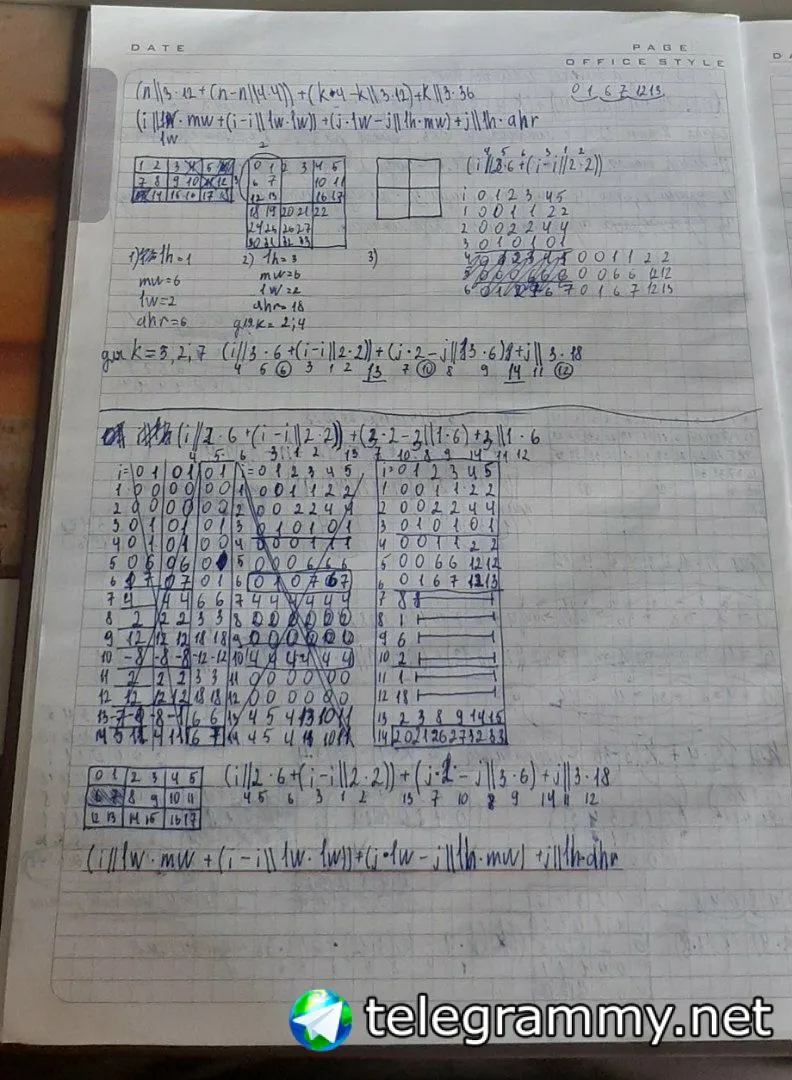 DATE
PAGE
OFFICE STYLE
(n||3·12+(n-n||4·4))+(k·4-k||3·12)+k||3·36
0 1 6 7 12 13
(i||lw·mw+(i-i||lw·lw))+(j·lw-j||lh·mw)+j||lh·ahr
lw
4 5 6 3 1 2
(i||2·6+(i-i||2·2))
2
1 2 3 4 5
7 8 9 10 12
14 15 16 17 18
0 1 2 3 4 5
6 7 10 11
12 13 16 17
18 19 20 21 22
24 25 26 27
30 31 32 33
i 0 1 2 3 4 5
1 0 0 1 1 2 2
2 0 0 2 2 4 4
3 0 1 0 1 0 1
4 0 0 1 1 2 2
5 0 0 6 6 12 12
6 0 1 6 7 12 13
1) lh=1
mw=6
lw=2
ahr=6
2) lh=3
mw=6
lw=2
ahr=18
для k=2;4
3)
для k=3,2;7 (i||3·6+(i-i||2·2))+(j·2-j||3·6)+j||3·18
4 5 6 3 1 2 13 7 10 8 9 14 11 12
(i||2·6+(i-i||2·2))+(3·2-3||1·6)+3||1·6
4 5 6 3 1 2 13 7 10 8 9 14 11 12
i=0 1 0 1 0 1 i=0 1 2 3 4 5 i=0 1 2 3 4 5
1 0 0 0 0 0 0 1 0 0 1 1 2 2 1 0 0 1 1 2 2
2 0 0 0 0 0 0 2 0 0 2 2 4 4 2 0 0 2 2 4 4
3 0 1 0 1 0 1 3 0 1 0 1 0 1 3 0 1 0 1 0 1
4 0 1 0 1 0 0 4 0 0 0 1 1 1 4 0 0 1 1 2 2
5 0 6 0 6 0 5 0 0 0 6 6 6 5 0 0 6 6 12 12
6 0 7 0 7 0 1 6 0 1 0 7 6 7 6 0 1 6 7 12 13
7 4 4 4 6 6 7 4 4 4 4 4 4 7 8
8 2 2 2 3 3 8 0 0 0 0 0 0 8 1
9 12 12 12 18 18 9 0 0 0 0 0 0 9 6
10 -8 -8 -8 -12 -12 10 4 4 4 4 4 4 10 2
11 2 2 2 3 3 11 0 0 0 0 0 0 11 1
12 12 12 12 18 18 12 0 0 0 0 0 0 12 18
6 6 13 4 5 4 13 10 11 13 2 3 8 9 14 15
6 7 14 4 5 4 10 11 14 20 21 26 27 32 33
0 1 2 3 4 5
6 7 8 9 10 11
12 13 14 15 16 17
(i||2·6+(i-i||2·2))+(j·2-j||3·6)+j||3·18
4 5 6 3 1 2 13 7 10 8 9 14 11 12
(i||lw·mw+(i-i||lw·lw))+(j·lw-j||lh·mw)+j||lh·ahr
telegrammy.net